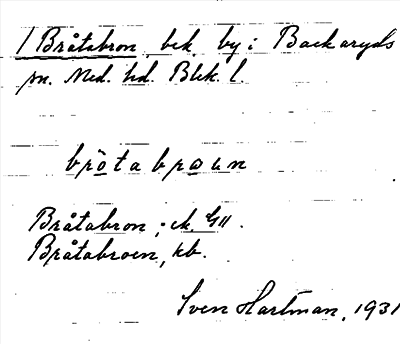 / Bråtabron, bek. by i Backaryds
sn. Med. hd. Blek. l.
brötabrɷun
Bråtabron; ek. G11.
Bråtabroen, kb.
Sven Hartman, 1931